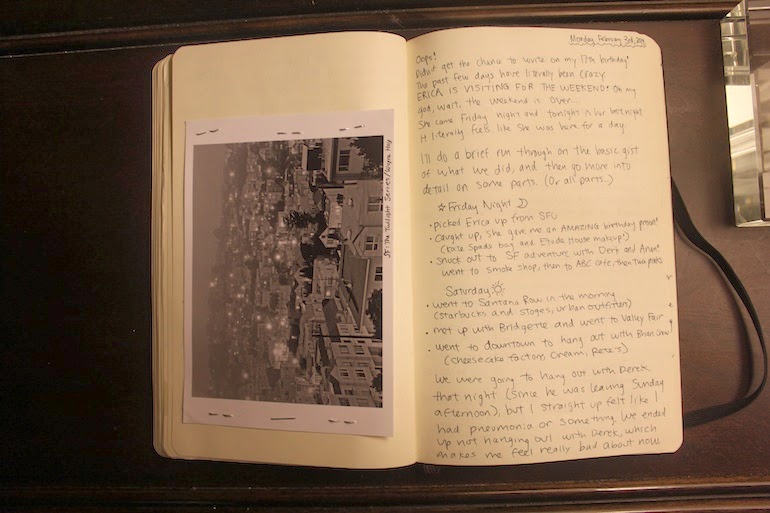 SF: The Twilight Series /
Monday, February 3rd,
Oops!
Didn't get the chance to write on my 17th birthday!
The past few days have literally been crazy.
ERICA IS VISITING FOR THE WEEKEND! Oh my
god, wait, the weekend is over...
She came Friday night and tonight is her last night
It literally feels like she was here for a day.
I'll do a brief run through on the basic gist
of what we did, and then go more into
detail on some parts. (Or all parts..)
☆ Friday Night ☽
• picked Erica up from SFO
• caught up, she gave me an AMAZING birthday present!
(Kate Spade bag and Etude House makeup!)
• snuck out to SF adventure with Derk and
went to smoke shop, then to ABC cafe, then
Saturday ☼
• went to Santana Row in the morning
(starbucks and stores, urban outfitters)
• met up with Bridgette and went to Valley Fair
• went to downtown to hang out with Brian
(cheesecake factory, Cream, Pete's)
We were going to hang out with Derek
that night (since he was leaving Sunday
afternoon), but I straight up felt like I
had pneumonia or something. We ended
up not hanging out with Derek, which
makes me feel really bad about now